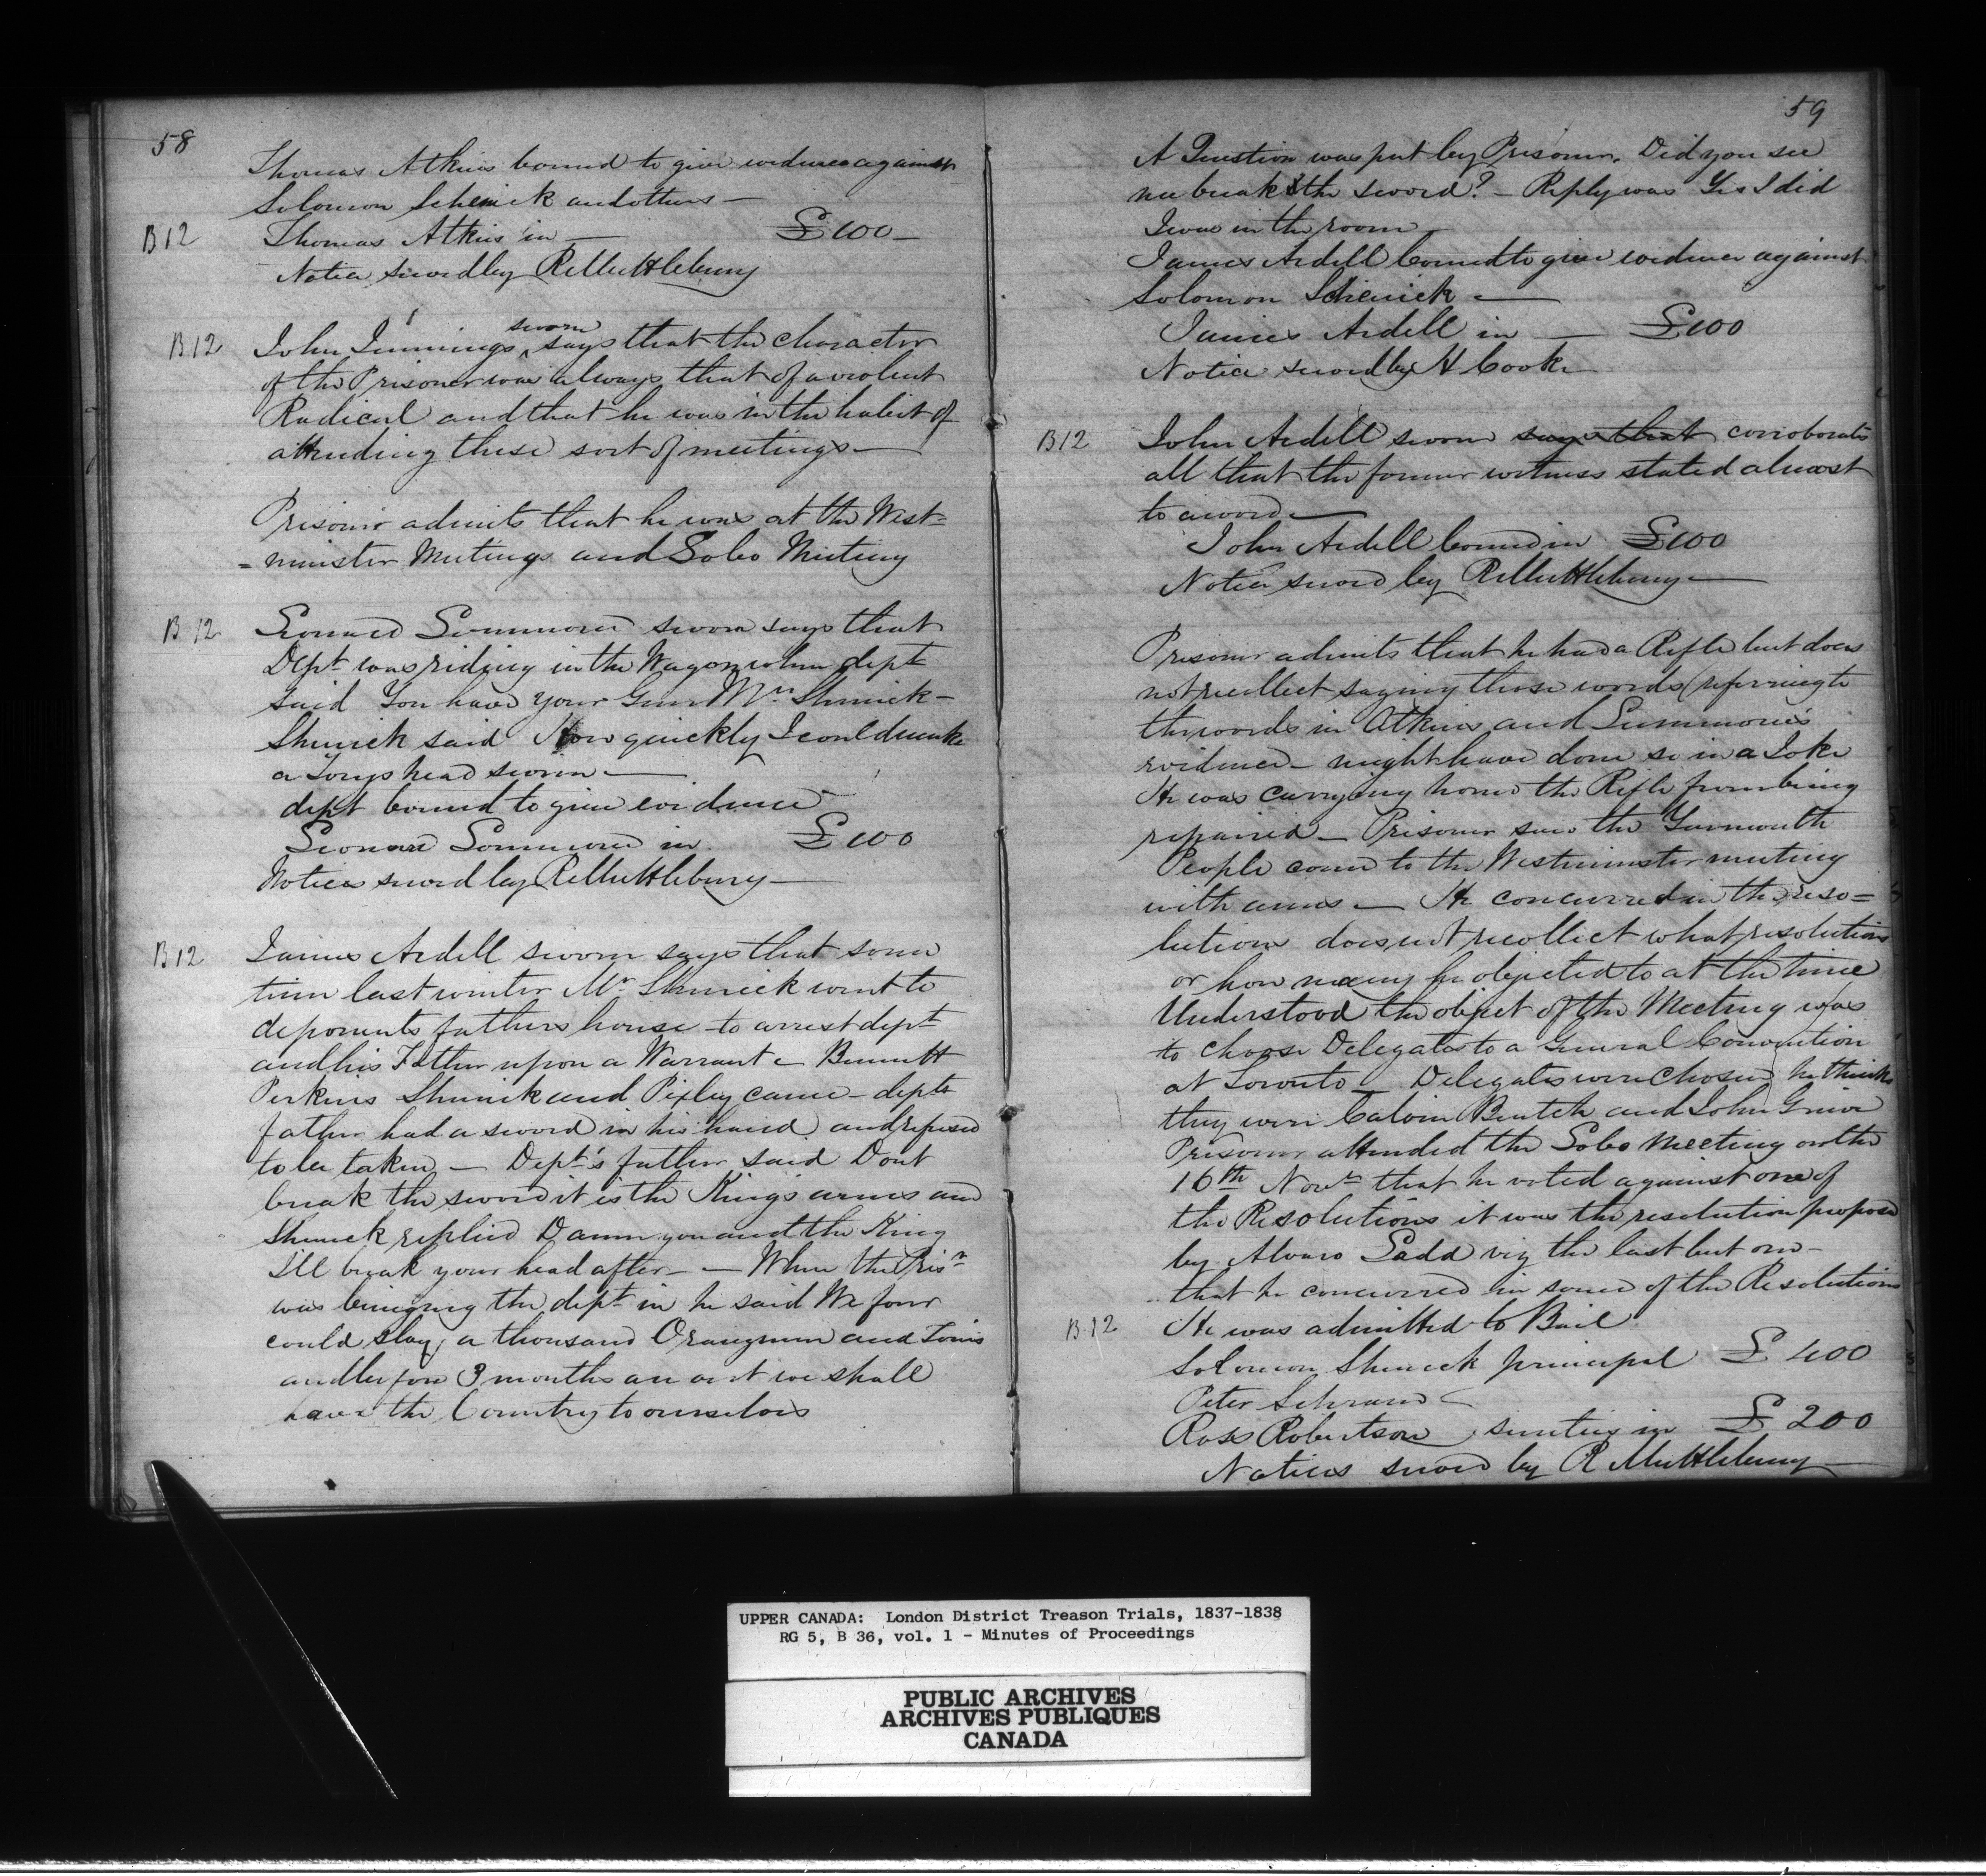 58
Thomas Atkins bound to give evidence against
Solomon Schenick and others —
B 12 Thomas Atkins in — £100 —
Notice served by R Muttlebury
B 12 John Jennings sworn says that the character
of the Prisoner was always that of a violent
Radical and that he was in the habit of
attending these sort of meetings —
Prisoner admits that he was at the West=
=minster Meetings and Lobo Meeting
B 12 Leonard sworn says that
Dept was riding in the Wagon when dept
said You have your Gun Mr. Shenick —
Shenick said How quickly I could make
a Torys head swim —
dept bound to give evidence
Leonard in £100
Notices served by R Muttlebury —
B 12 James Ardell sworn says that some
time last winter Mr Shenick went to
deponents fathers house to arrest dept
and his Father upon a Warrant — Bennett
Perkins Shenick and Pixley came — depts
father had a sword in his hand and refused
to be taken — Dept's father said Dont
break the sword it is the King's arms and
Shenick replied Damn you and the King
I'll break your head after — — When the Prisr
was bringing the dept in he said We four
could slay a thousand Orangemen and Tories
and before 3 months are out we shall
have the Country to ourselves
59
A Question was put by Prisoner. Did you see
me break the sword? — Reply was Yes I did
I was in the room —
James Ardell bound to give evidence against
Solomon Schenick —
James Ardell in — £100
Notice served by H Cook
B 12 John Ardell sworn says that corroborates
all that the former witness stated almost
to a word —
John Ardell bound in £100
Notice served by R Muttlebury —
Prisoner admits that he had a Rifle but does
not recollect saying those words (referring to
the words in Atkins and
evidence — might have done so in a Joke
He was carrying home the Rifle from being
repaired — Prisoner saw the Yarmouth
People come to the Westminster meeting
with arms — He concurred in the reso=
lutions does not recollect what resolutions
or how many he objected to at the time
Understood the object of the Meeting was
to choose Delegates to a General Convention
at Toronto — Delegates were Chosen he thinks
they were Calvin Burtch and John Grieve
Prisoner attended the Lobo Meeting on the
16th Novr that he voted against one of
the Resolutions it was the resolution proposed
by Alvaro Ladd viz the last but one —
that he concurred in some of the Resolutions
B 12 He was admitted to Bail
Solomon Shenick principal £400
Peter Schram
Ross Robertson sureties in £200
Notices served by R Muttlebury —
UPPER CANADA: London District Treason Trials, 1837-1838
RG 5, B 36, vol. 1 - Minutes of Proceedings
PUBLIC ARCHIVES
ARCHIVES PUBLIQUES
CANADA